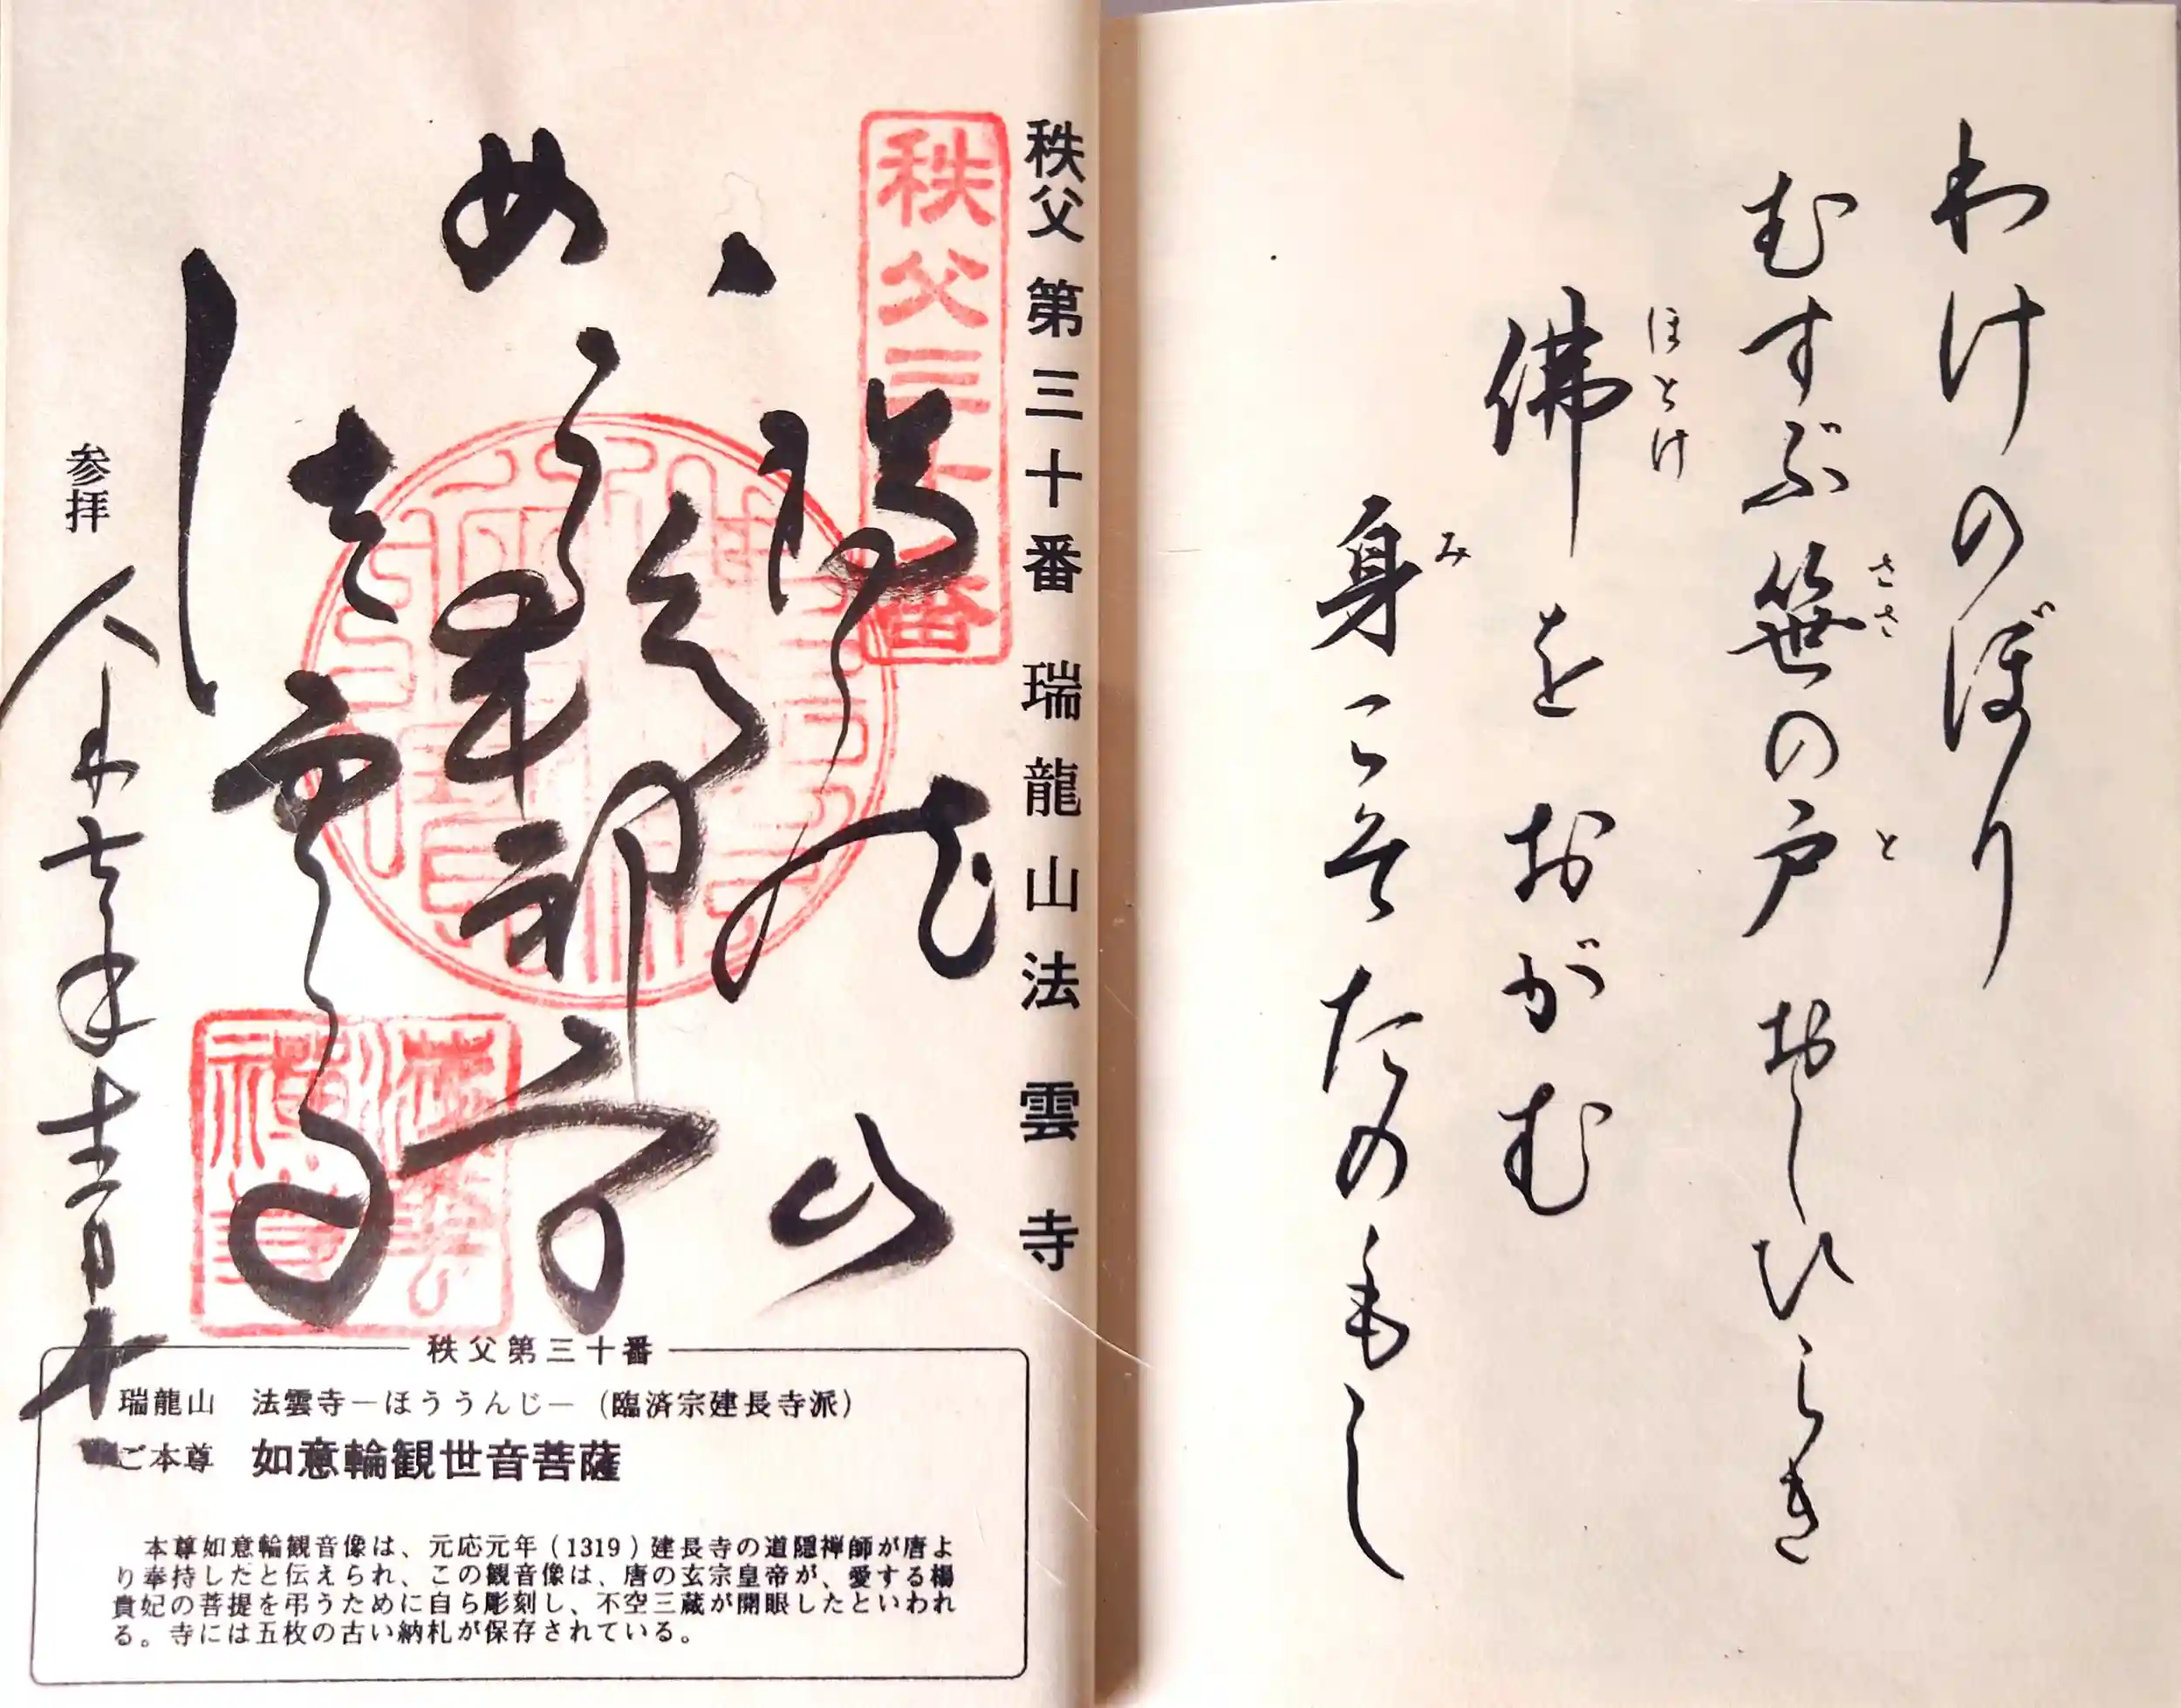 わけのぼり
むすぶ笹の戸おしひらき
ささ
と
佛をおがむ
ほとけ
身こそたのもし
み
秩父第三十番 瑞龍山法雲寺
秩父三十番
法雲寺
参拝
令和七年
秩父第三十番
瑞龍山 法雲寺―ほううんじ―(臨済宗建長寺派)
ご本尊 如意輪観世音菩薩
本尊如意輪観音像は、元応元年(1319)建長寺の道隠禅師が唐よ
り奉持したと伝えられ、この観音像は、唐の玄宗皇帝が、愛する楊
貴妃の菩提を弔うために自ら彫刻し、不空三蔵が開眼したといわれ
る。寺には五枚の古い納札が保存されている。